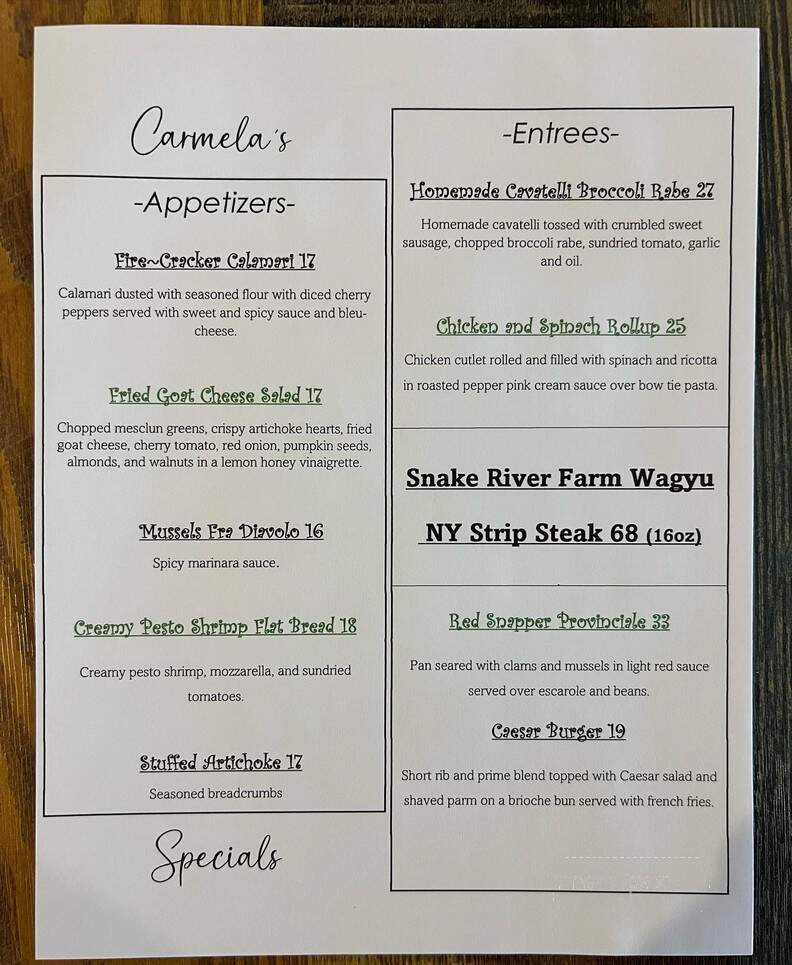 Carmela's
-Appetizers-
Fire~Cracker Calamari 17
Calamari dusted with seasoned flour with diced cherry
peppers served with sweet and spicy sauce and bleu-
cheese.
Fried Goat Cheese Salad 17
Chopped mesclun greens, crispy artichoke hearts, fried
goat cheese, cherry tomato, red onion, pumpkin seeds,
almonds, and walnuts in a lemon honey vinaigrette.
Mussels Fra Diavolo 16
Spicy marinara sauce.
Creamy Pesto Shrimp Flat Bread 18
Creamy pesto shrimp, mozzarella, and sundried
tomatoes.
Stuffed Artichoke 17
Seasoned breadcrumbs
Specials
-Entrees-
Homemade Cavatelli Broccoli Rabe 27
Homemade cavatelli tossed with crumbled sweet
sausage, chopped broccoli rabe, sundried tomato, garlic
and oil.
Chicken and Spinach Rollup 25
Chicken cutlet rolled and filled with spinach and ricotta
in roasted pepper pink cream sauce over bow tie pasta.
Snake River Farm Wagyu
NY Strip Steak 68 (16oz)
Red Snapper Provinciale 33
Pan seared with clams and mussels in light red sauce
served over escarole and beans.
Caesar Burger 19
Short rib and prime blend topped with Caesar salad and
shaved parm on a brioche bun served with french fries.